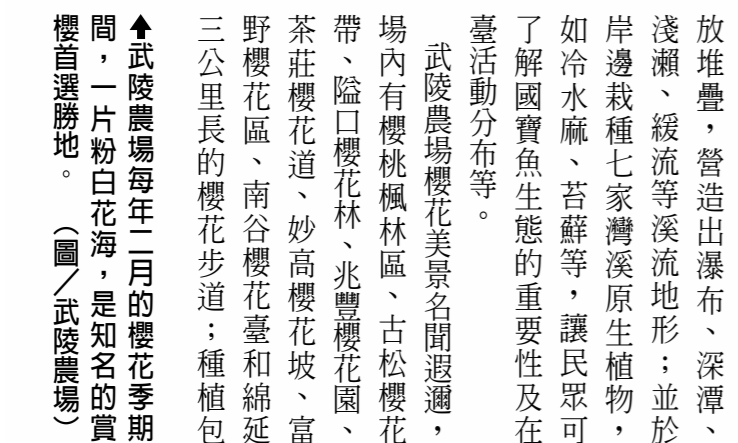 放堆疊，營造出瀑布、深潭、
淺瀨、緩流等溪流地形；並於
岸邊栽種七家灣溪原生植物，
如冷水麻、苔蘚等，讓民眾可
了解國寶魚生態的重要性及在
臺活動分布等。
武陵農場櫻花美景名聞遐邇，
場內有櫻桃楓林區、古松櫻花
帶、隘口櫻花林、兆豐櫻花園、
茶莊櫻花道、妙高櫻花坡、富
野櫻花區、南谷櫻花臺和綿延
三公里長的櫻花步道；種植包
⬆武陵農場每年二月的櫻花季期
間，一片粉白花海，是知名的賞
櫻首選勝地。（圖／武陵農場）